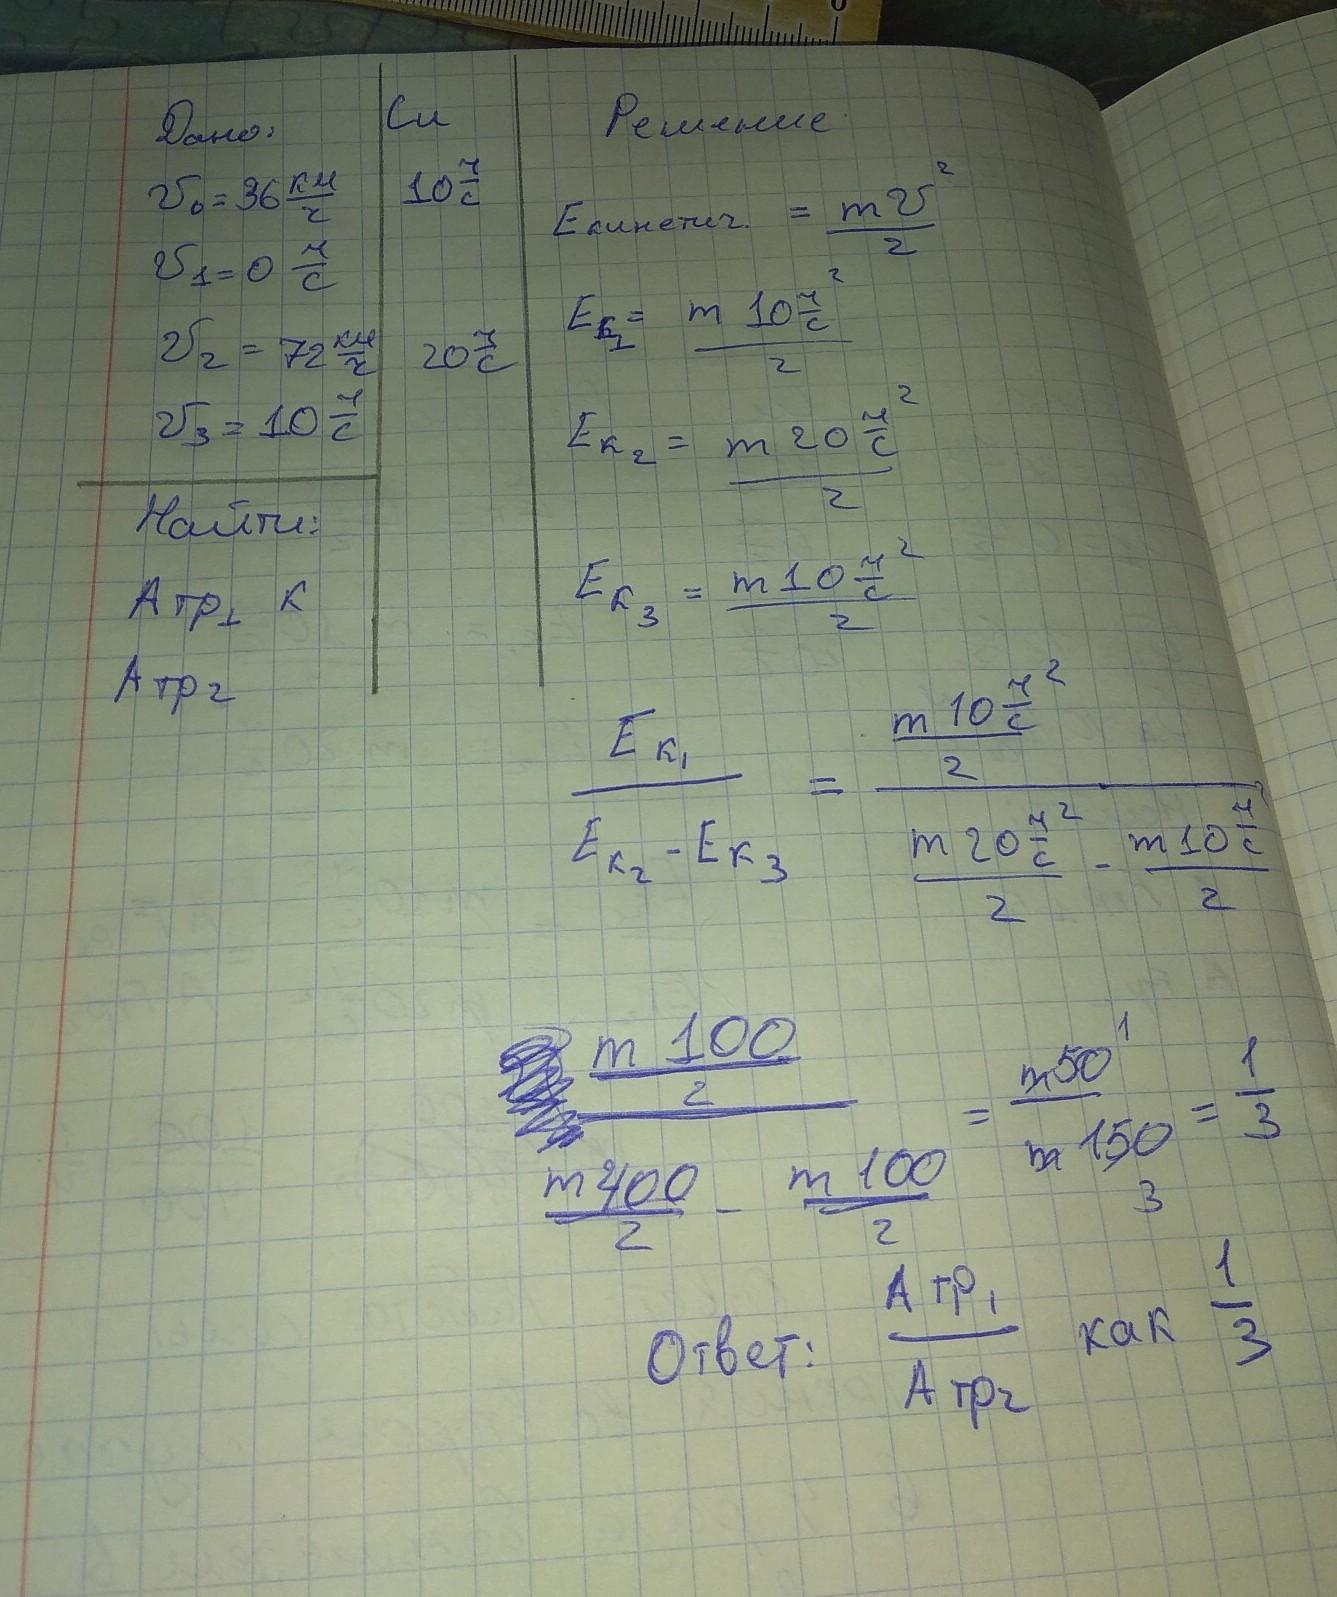 Дано:
Си
Решение
v₀ = 36 км/ч
10 м/с
v₁ = 0 м/с
v₂ = 72 км/ч
20 м/с
v₃ = 10 м/с
Найти:
Aтр₁ к
Aтр₂
Eкинетич. = mv²/2
Eк₁ = m 10 м/с²/2
Eк₂ = m 20 м/с²/2
Eк₃ = m 10 м/с²/2
Eк₁/(Eк₂ - Eк₃) = (m 10 м/с²/2)/(m 20 м/с²/2 - m 10 м/с/2)
(m 100/2)/(m 400/2 - m 100/2) = m 50 1/m 150 3 = 1/3
Ответ: Aтр₁/Aтр₂ как 1/3
0